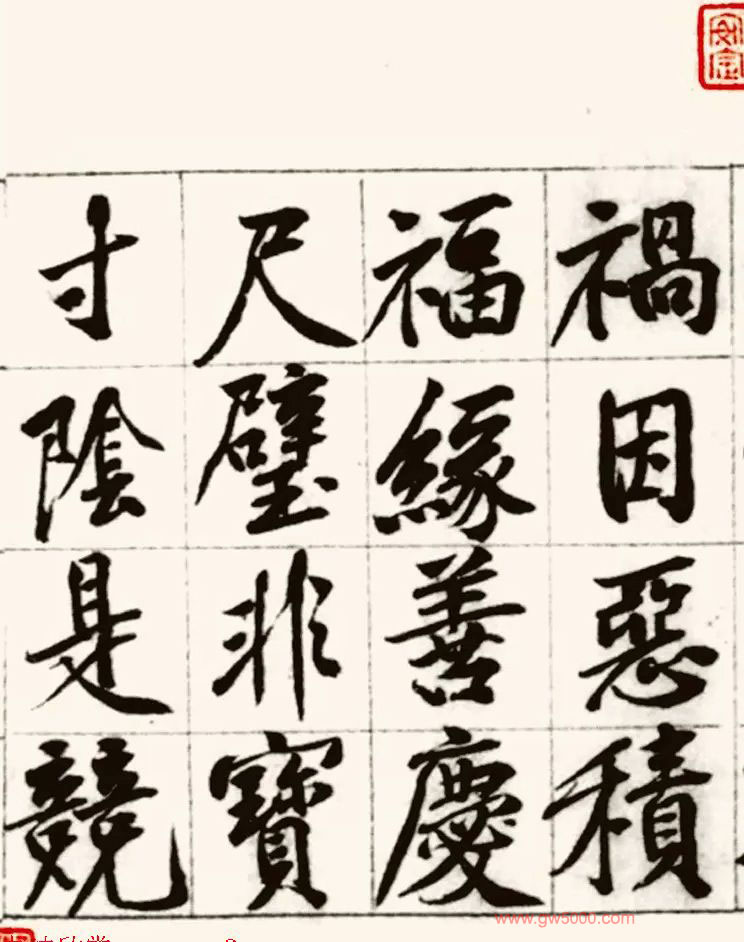 禍因惡積
福緣善慶
尺璧非寶
寸陰是競
www.gw5000.com